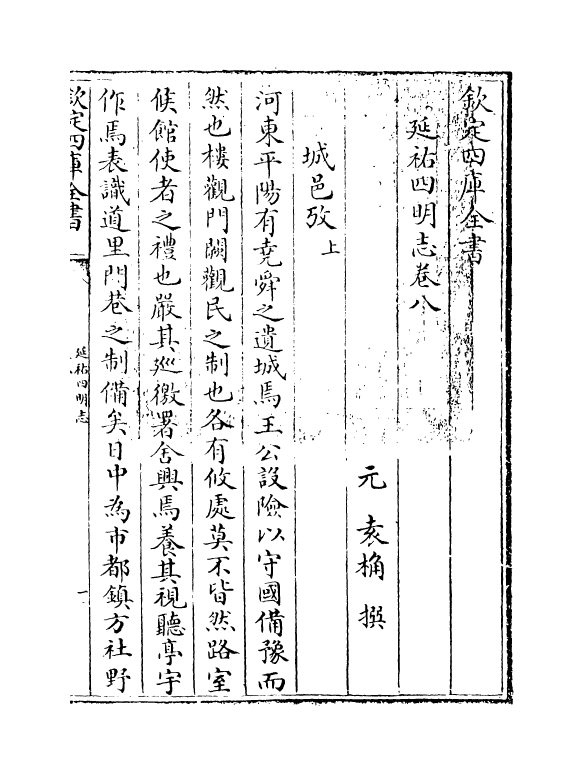 欽定四庫全書
延祐四明志卷八
元 袁桷 撰
城邑攷上
河東平陽有堯舜之遺城焉王公設險以守國備豫而
然也樓觀門闕觀民之制也各有攸處莫不皆然路室
候館使者之禮也嚴其廵徼署舍興焉養其視聽亭宇
作焉表識道里門巷之制備矣日中為市都鎮方社野
欽定四庫全書
延祐四明志
一